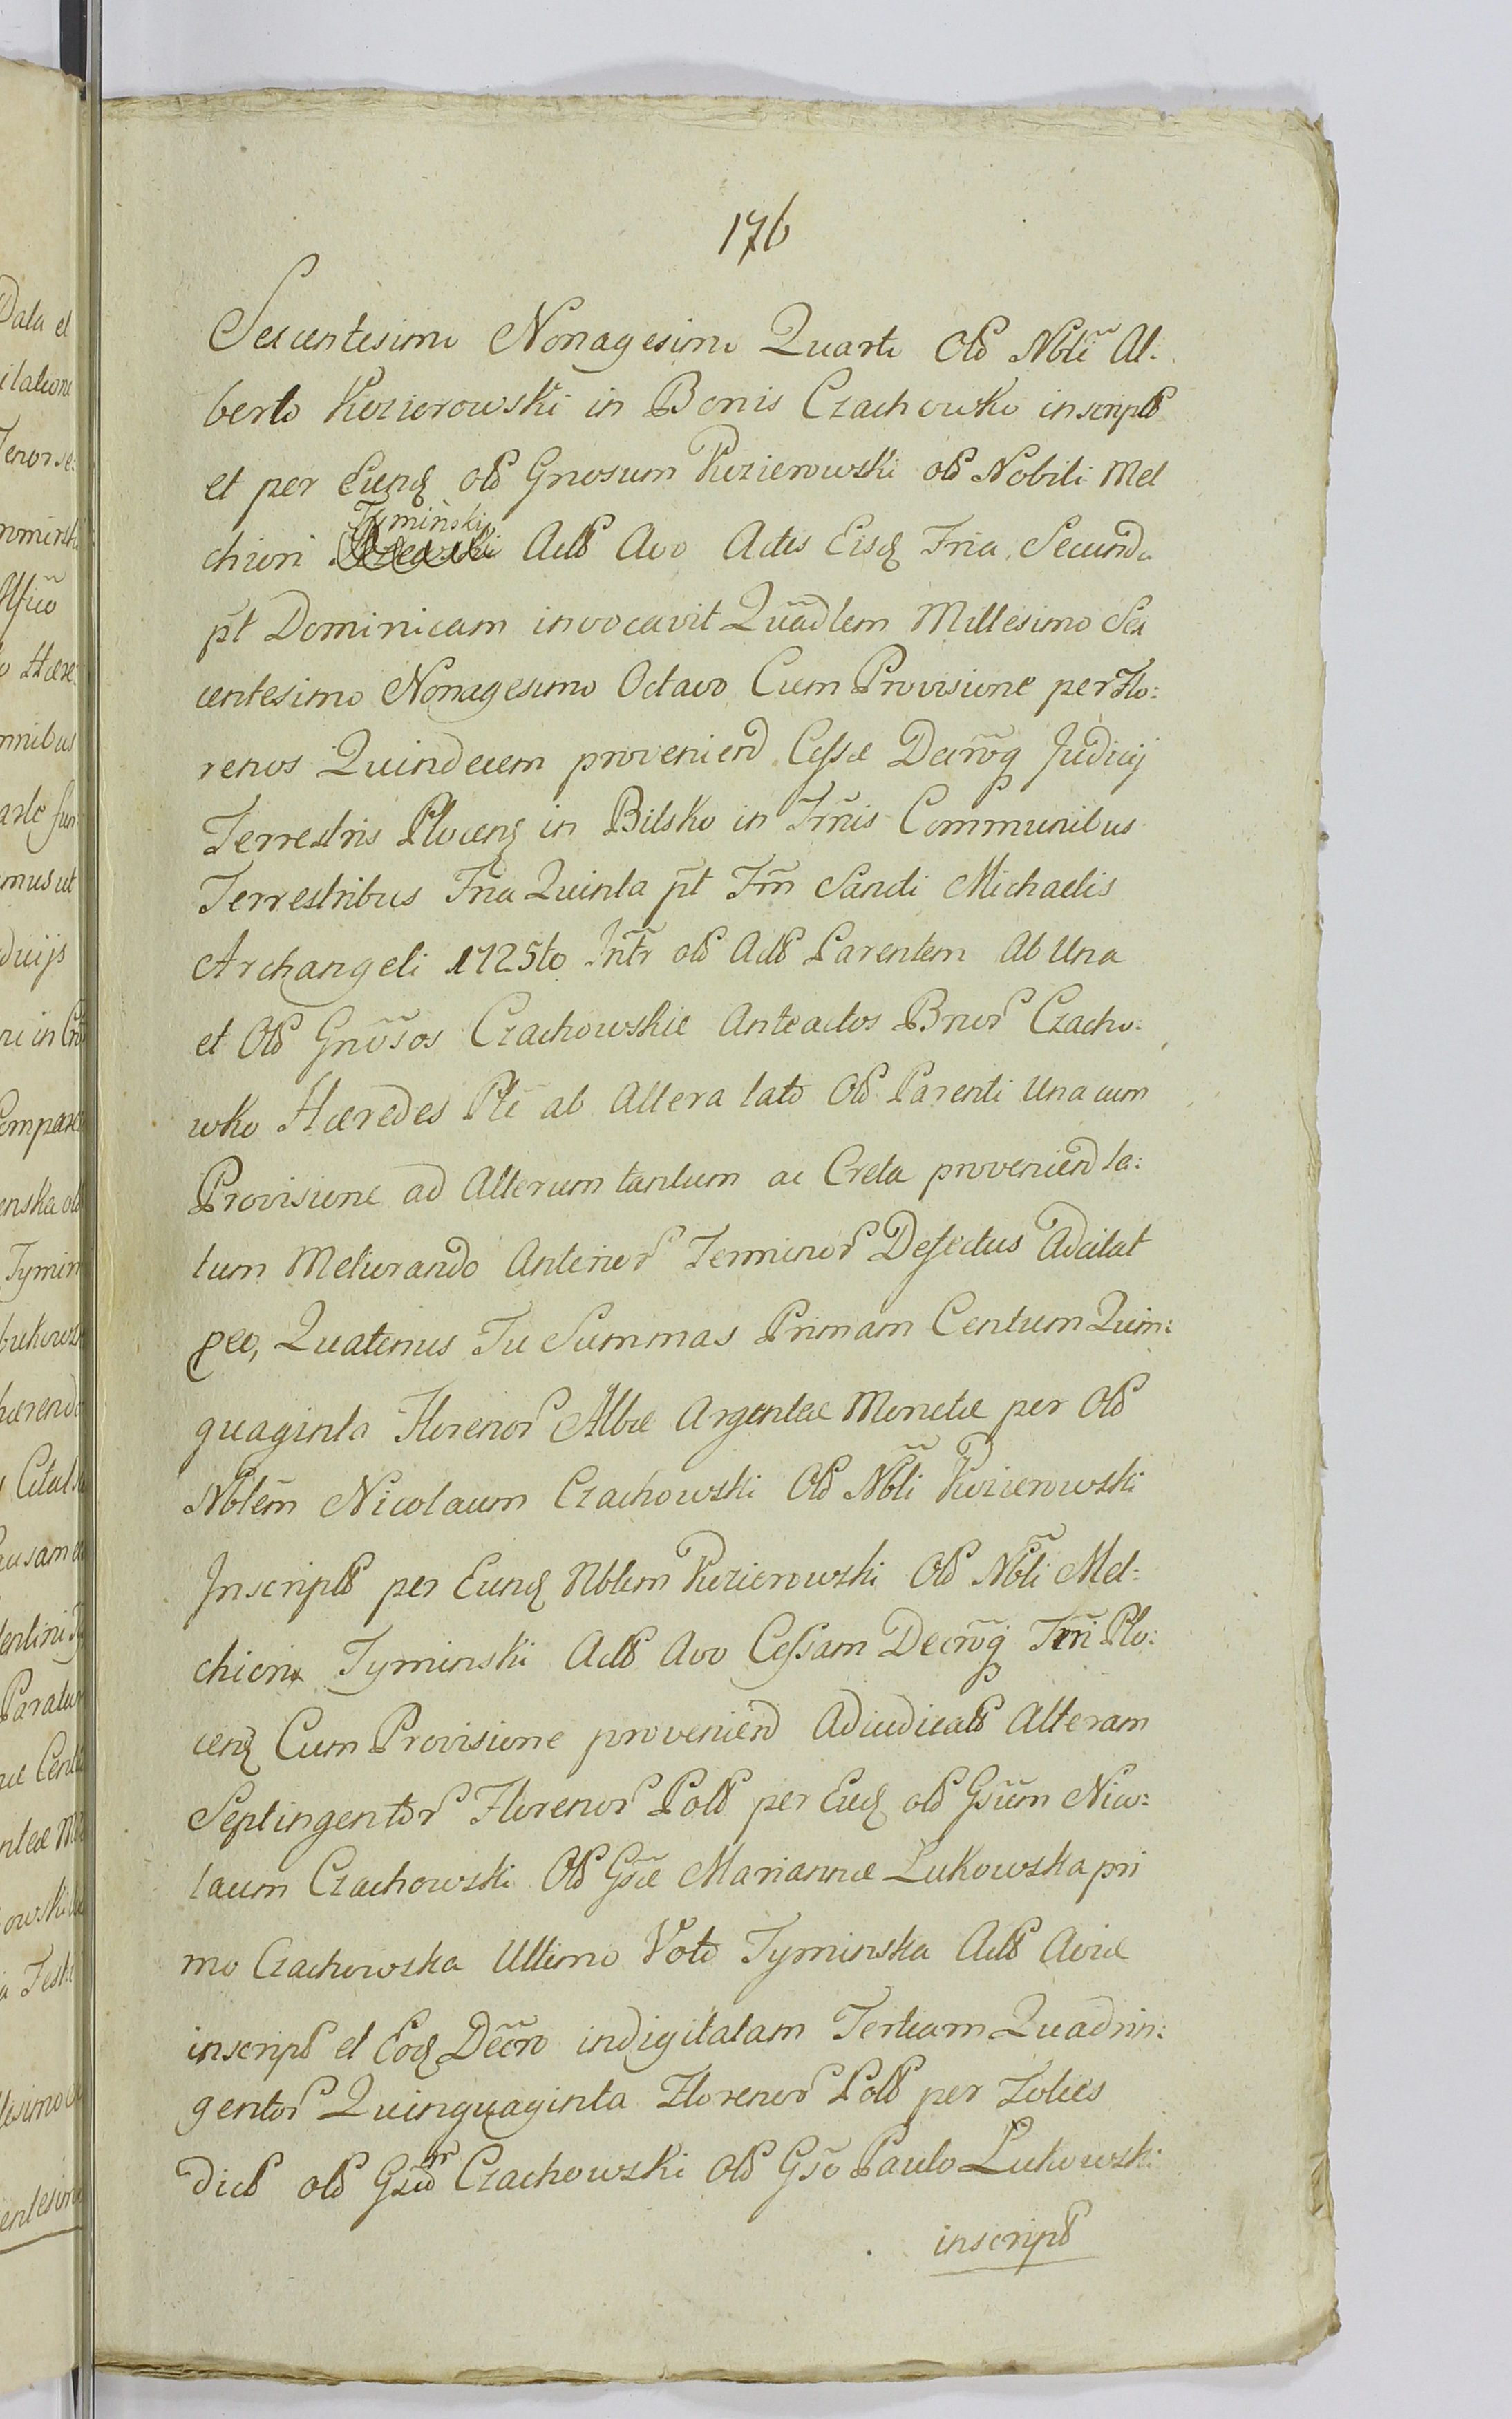 176
Sexcentesimo Nonagesimo Quarto Olб Nbli Al:
berto Kozierowski in Bonis Czachowko inscriptб
et per Eundę olб Gnosum Kozierowski olб Nobili Mel
chiori Tyminski Actб Avo Actis Eisdę Fria Secunda
pt Dominicam invocavit Quadlem Millesimo Sex
centesimo Nonagesimo Octavo Cum Provisione per Flo:
renos Quindecem provenienд Cessae Decroq Judicij
Terrestris Plocenę in Bilsko in Trnis Communibus
Terrestribus Fria Quinta pt Fm Sancti Michaelis
Archangeli 1725to Intr olб Actб Parentem Ab Una
et Olб Gnosos Czachowskie Anteactos Bnor Czacho:
wko Haeredes Pte ab Altera lato Olб Parenti Una cum
Provisione ad Alterum tantum ac Creta proveniend la:
tum Meliorando Anterior Terminor Defectus Adcitat
peo, Quatenus Tu Summas Primam Centum Quin:
quaginta Florenor Albae Argenteae Monetae per Olб
Nblem Nicolaum Czachowski Olб Nbli Kozierowski
Inscriptб per Eundę Nblem Kozierowski Olб Nbli Mel:
chiori Tyminski Actб Avo Cessam Decroq Trri Plo:
cenę Cum Provisione provenienд Adiudicatб Alteram
Septingentor Florenor Polб per Eudę olб Gsum Nico:
laum Czachowski Olб Gsae Mariannae Lukowska pri
mo Czachowska Ultimo Voto Tyminska Actб Aviae
inscripб et Eodę Decro indigitatam Tertiam Quadrin:
gentor Quinquaginta Florenor Polб per Toties
dictб olб Gsum Czachowski Olб Gso Paulo Lukowski
inscripб